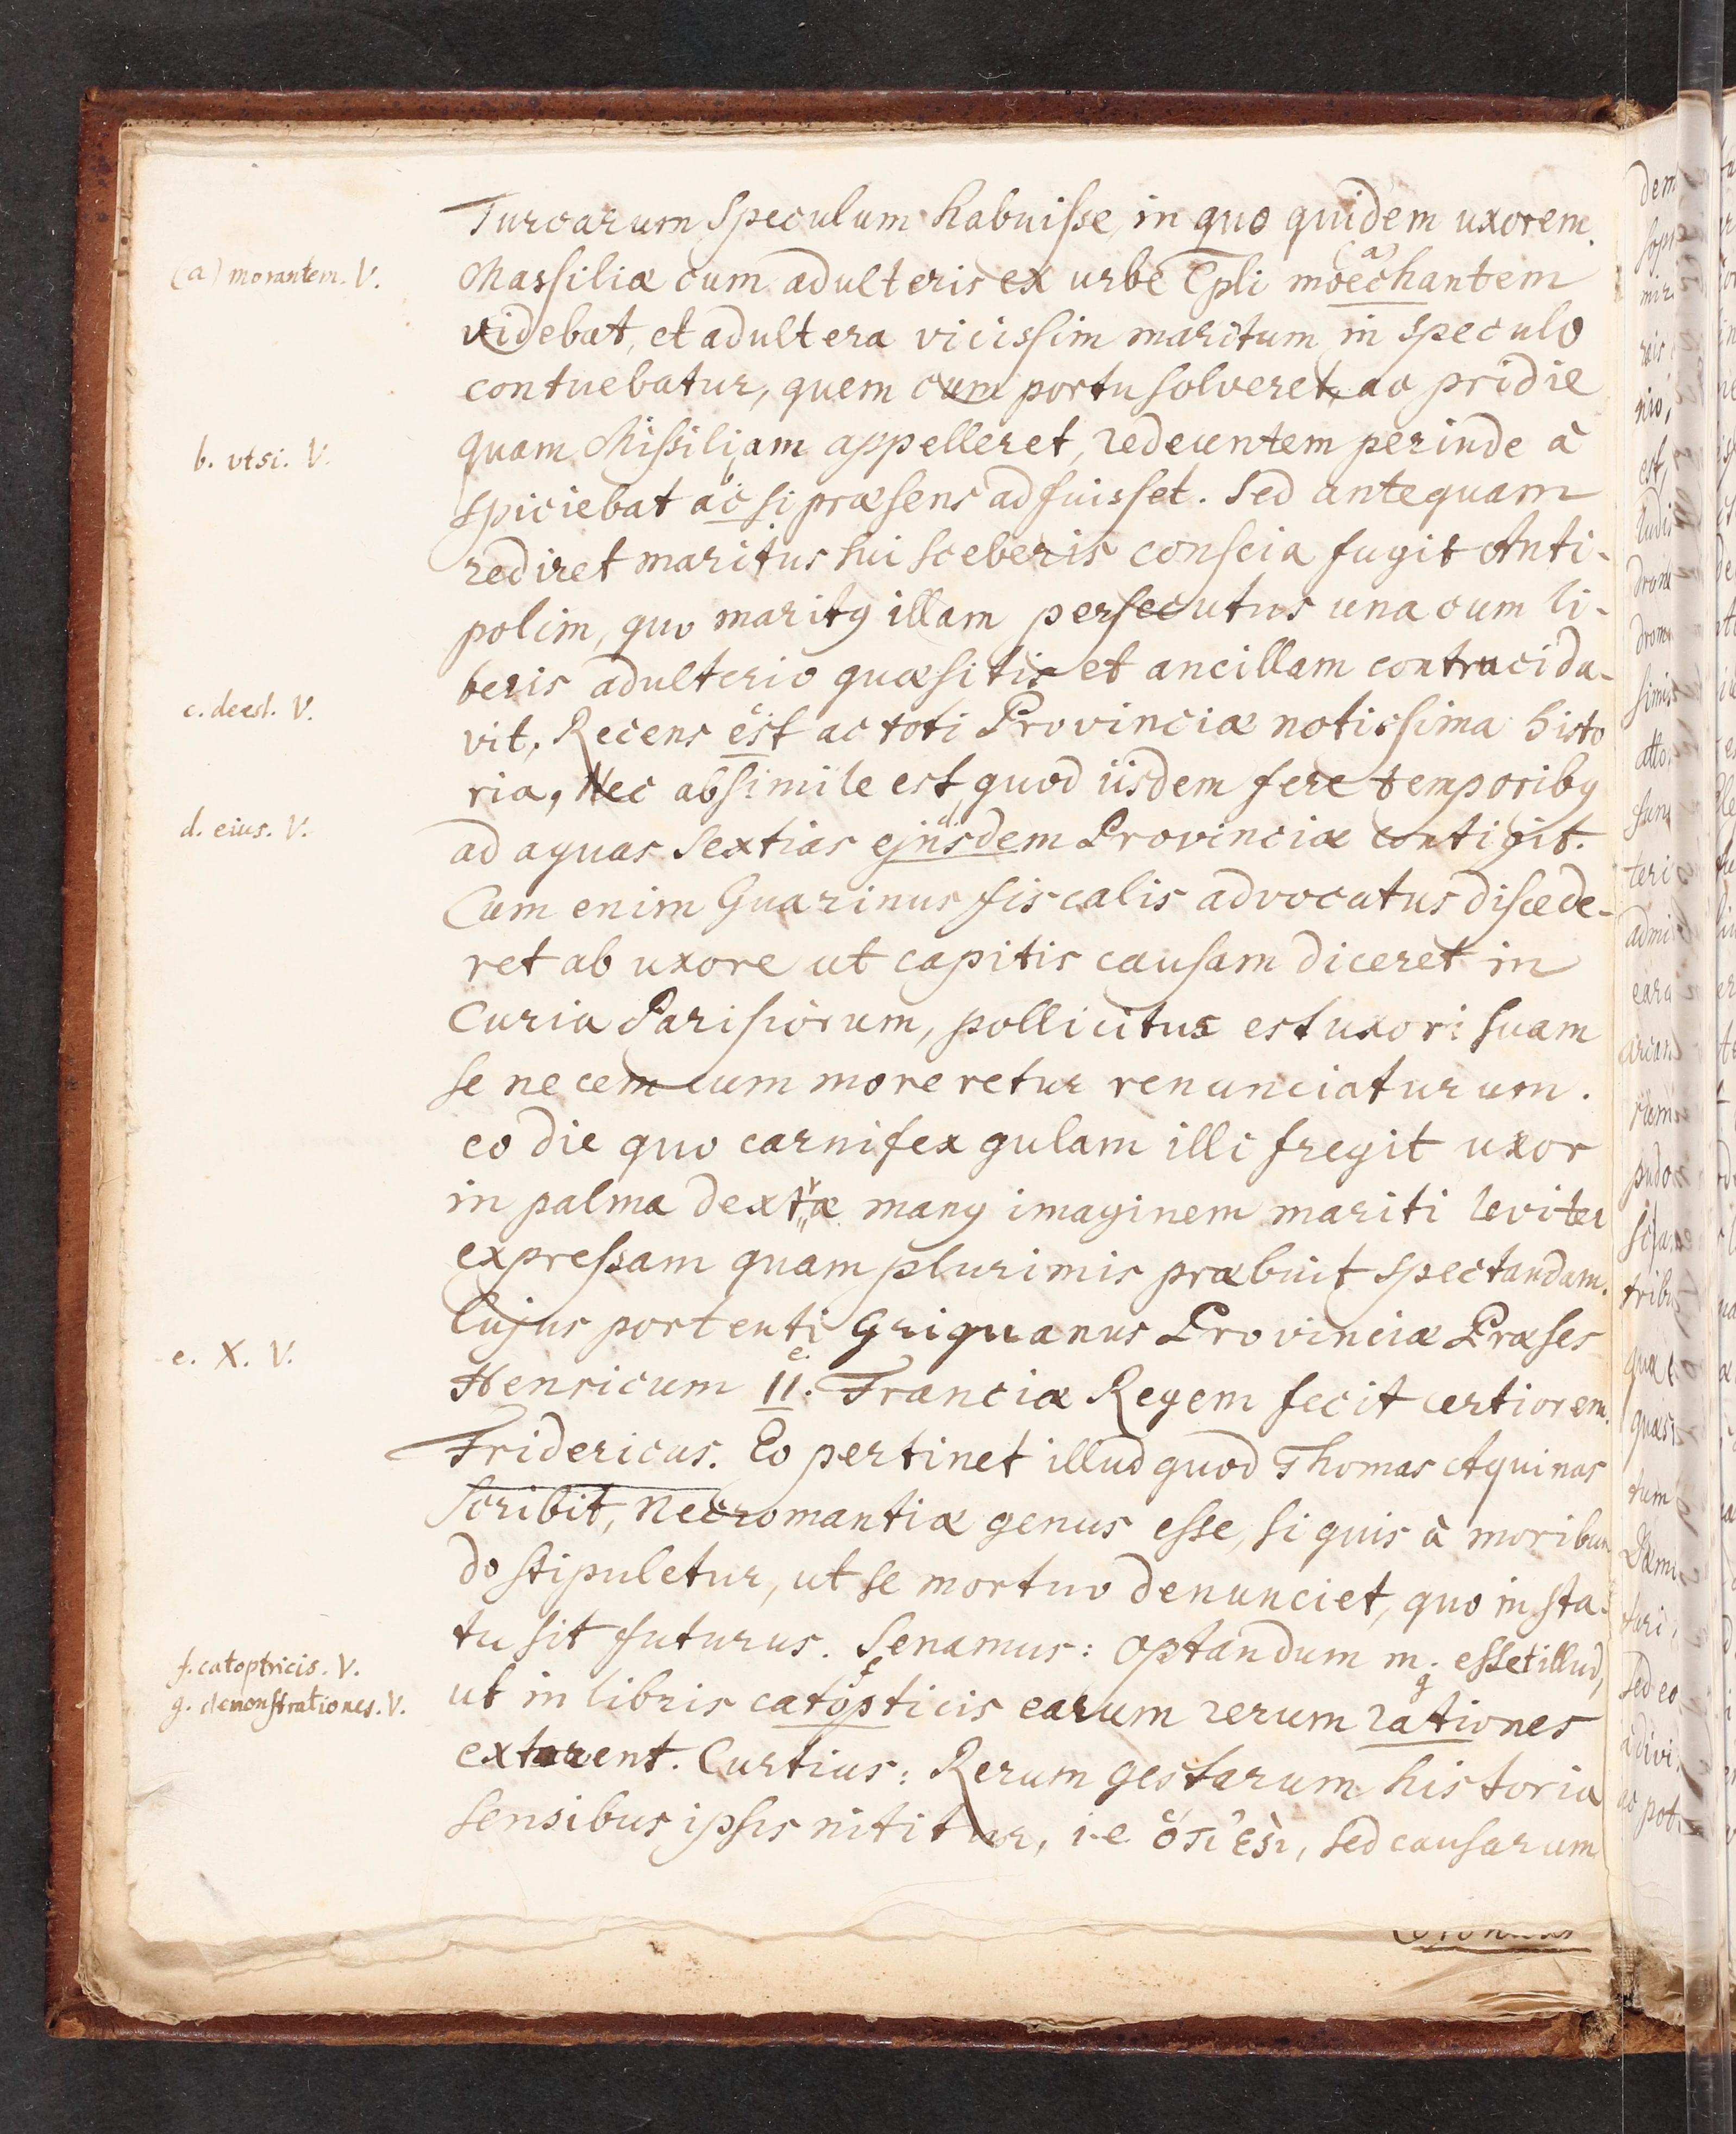 Turcarum speculum habuisse, in quo quidem uxorem
(a) morantem. V.
Massiliæ cum adulteris ex urbe Epli moechantem (a)
videbat, et adultera vicissim maritum in speculo
contuebatur, quem cum portu solveret, ac pridie
b. vtsi. V.
quam Missiliam appelleret, redeuntem perinde à
spiciebat ac si præsens adfuisset. Sed antequam
rediret maritus sui sceleris conscia fugit Anti-
polim, quo maritq illam persecutus una cum li-
beris adulterio quæsitis et ancillam contrucida-
c. deest. V.
vit, Recens est c. ac toti Provinciæ notissima histo
ria, Nec absimile est, quod iisdem fere temporibq
d. eius. V.
ad aquas Sextias ejusdem d. Provinciæ contigit.
Cum enim Guarinus fiscalis advocatus discede-
ret ab uxore ut capitis causam diceret in
Curia Parisiorum, pollicitus est uxori suam
se necem cum moreretur renunciaturum.
eo die quo carnifex gulam illi fregit uxor
in palma dextræ manq imaginem mariti leviter
expressam quam plurimis præbuit spectandam.
Cujus portenti Griguanus Provinciæ Præses
e. X. V.
Henricum II. e. Franciæ Regem fecit certiorem.
Fridericus. Eo pertinet illud quod Thomas Aquinas
Scribit, Necromantiæ genus esse, si quis à moribun
do stipuletur, ut se mortuo denunciet, quo in sta-
tu sit futurus. Senamus: Optandum m. esset illud,
f. catoptricis. V.
g. demonstrationes. V.
ut in libris catopticis f earum rerum rationes g
extarent. Curtius: Rerum gestarum historia
sensibus ipsis nititur, i.e ὅτι ἐςὶ, sed causarum